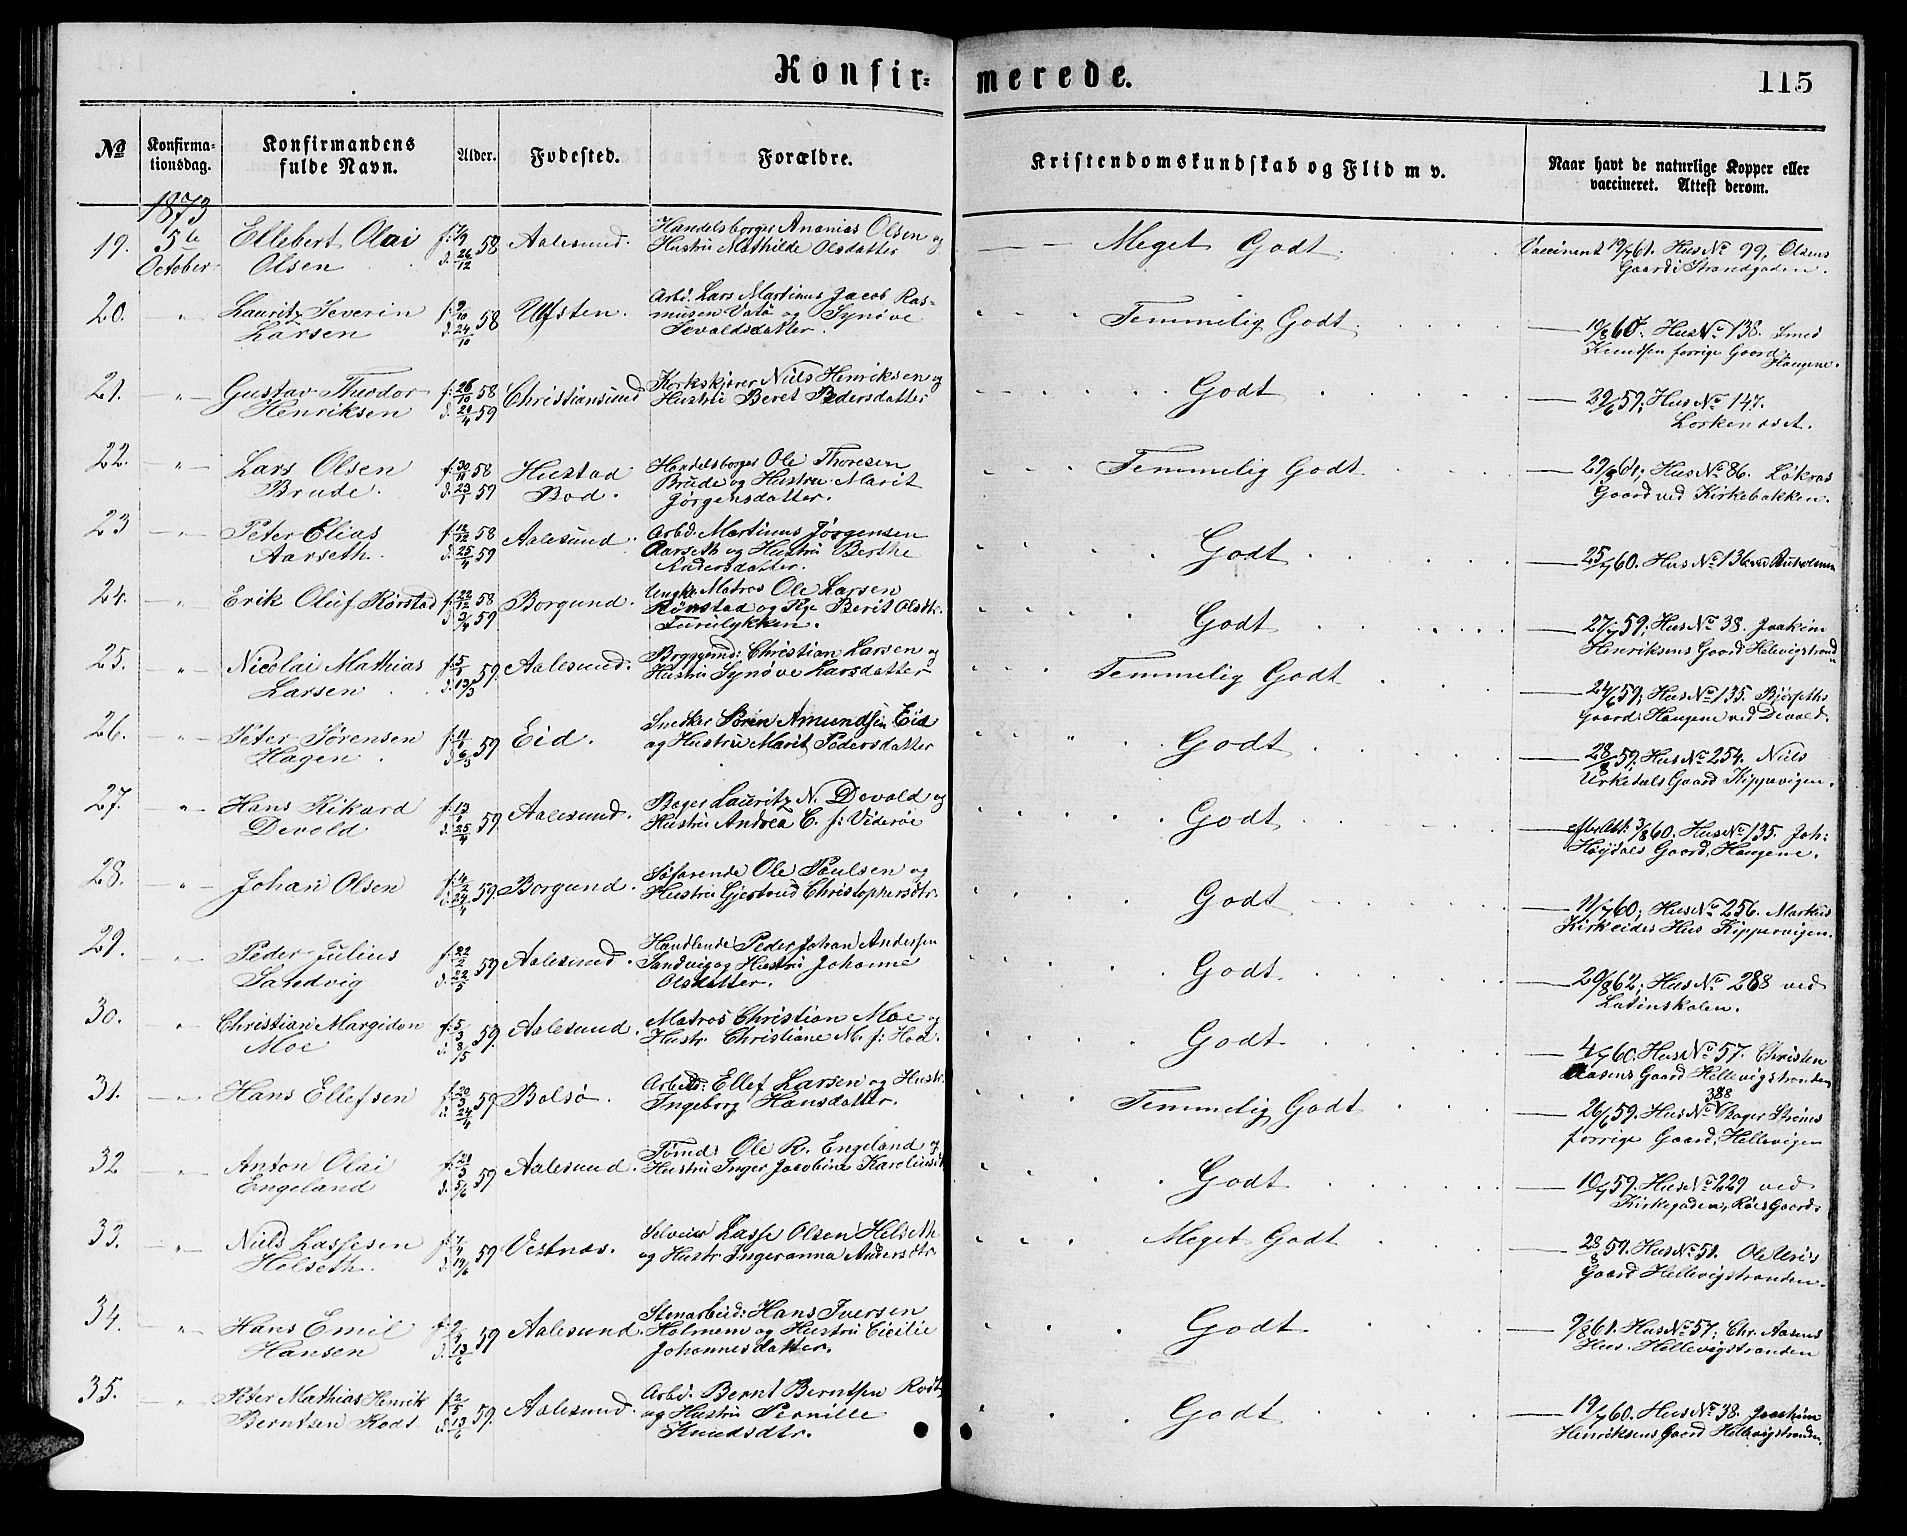 Konfir- merede. 115
No Konfirma- tionsdag. Konfirmandens fulde Navn. Alder. Fødested. Forældre. Kristendomskundskab og Flid m v. Naar havt de naturlige Kopper eller vaccineret. Attest derom.
1873
19. 5te Ellebert Olai f. 58 Aalesund. Handelsborger Ananias Olsen og Meget Godt Vaccineret 19/7 61. Hus No 99, Olsens
October Olsen d. 26/12 Hustru Mathilde Olsdatter Gaard i Strandgaden.
20. " Lauritz Severin f. 9/10 58 Ulfsten. Arbd. Lars Martinus Jacob Ras- Temmelig Godt. 10/8 60. Hus No 138. Smed
Larsen d. 24/10 musen Vatø og Synøve Knudsen forrige Gaard,
Sevaldsdatter. Haugene.
21. " Gustav Theodor f. 26/10 58 Christiansund Korkskjærer Niels Henriksen og Godt 59; Hus No 147.
Henriksen d. 20/4 59 Hustru Beret Pedersdatter Lorkenæset.
22. " Lars Olsen f. 58 Hustad Handelsborger Ole Thoresen Temmelig Godt 61; Hus No 86. Løkras
Brude. d. 23/1 59 Bod. Brude og Hustru Marit Gaard ved Kirkebakken.
Jørgensdatter.
23 " Peter Elias f. 12/12 58 Aalesund. Arbd. Martinus Jørgensen Godt 25/7 60. Hus No 136
Aarseth. d. 25/4 59 Aarseth og Hustru Berthe
Andersdatter.
24. " Erik Oluf Rørstad f. 22/12 58 Borgund. Ungk. Matros Ole Larsen Godt 27/7 59; Hus No 38. Joakim
d. 3/4 59 Rørstad og Pige Berit Olsdtr. Henriksens Gaard Hellevigstrand
Furulykken.
25. " Nicolai Mathias f. 5/1 59. Aalesund. Christian Larsen og Temmelig Godt 24/6 59; Hus No 135. Bjørseths
Larsen d. 13/3 Hustru Synøve Larsdatter Gaard; Haugene ved Devold.
26. " Peter Sørensen f. 11/1 59 Eid. Snedker Søren Amundsen Eid Godt 28/8 59; Hus No 254. Niels
Hagen. d. 6/3 og Hustru Marit Pedersdatter Urkedals Gaard Kippervigen.
27. " Hans Rikard f. 13/1 59 Aalesund. Bager Lauritz N. Devold og Godt 3/8 60. Hus No 135. Joh:
Devold d. 25/4 Hustru Andrea C. f: Viderøe Høydals Gaard, Haugene.
28. " Johan Olsen f. 4/2 59. Borgund. Søfarende Ole Paulsen og Godt 11/7 60; Hus No 256. Markus
d. 24/4 Hustru Gjertrud Christophersdtr. Kirkeides Hus Kippervigen.
29. " Peder Julius f. 22/2 59 Aalesund. Handlende Peder Johan Andersen Godt 20/8 62; Hus No 288 ved
Sandvig d. 22/5 Sandvig og Hustru Johanne Latinskolen.
Olsdatter.
30. " Christian Margidon f. 5/3 59. Aalesund. Matros Christian Moe og Godt 4/7 60. Hus No 57. Christen
Moe d. 8/5 Hustr. Christiane M. f: Hod. Aasens Gaard Hellevigstranden
31. " Hans Ellefsen f. 20/3 59 Bolsø. Arbeid: Ellef Larsen og Hustr. Temmelig Godt 26/6 59. Hus No 388 Bager Strøms
d. 24/4 Ingeborg Hansdatter. forrige Gaard, Hellevigen
32 " Anton Olai f. 21/3 59 Aalesund. Tømdr. Ole R. Engeland og Godt 10/7 59. Hus No 229 ved
Engeland d. 5/6 Hustru Inger Jacobine Karolius Kirkegaden, Røes Gaard.
33. " Niels Lassesen f. 7/4 59 Vestnæs. Selveier Lasse Olsen Helseth Meget Godt 28/8 59. Hus No 51. Ole Uris
Helseth. d. 19/6 og Hustr. Ingeranna Andersdtr. Gaard Hellevigstranden.
34. " Hans Emil f. 9/4 59 Aalesund. Stenarbeid: Hans Iversen Godt 9/8 61. Hus No 57; Chr. Aasens
Hansen d. 13/6 Holmem og Hustru Cicilie Hus. Hellevigstranden
Johannesdatter.
35. " Peter Mathias Henrik f. 2/5 59. Aalesund. Arbd. Bernt Berntsen Rodt Godt 19/7 60. Hus No 38. Joachim
Berntsen Rodt d. 13/6 og Hustru Pernille Henriksens Gaard Hellevigstranden.
Knudsdtr.